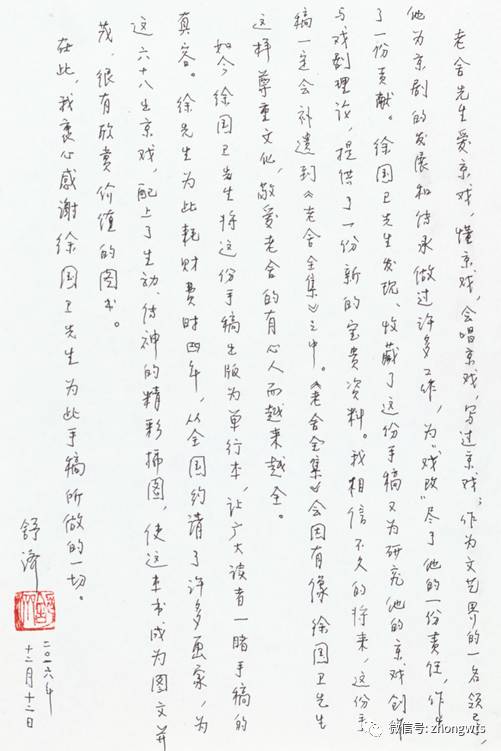 老舍先生爱京戏，懂京戏，会唱京戏，写过京戏；作为文艺界的一名领导，
他为京剧的发展和传承做过许多工作，为“戏改”尽了他的一份责任，作出
了一份贡献。徐国卫先生发现、收藏了这份手稿又为研究他的京戏创作
与戏剧理论，提供了一份新的宝贵资料。我相信不久的将来，这份手
稿一定会补遗到《老舍全集》之中。《老舍全集》会因有像徐国卫先生
这样尊重文化，敬爱老舍的有心人而越来越全。
如今徐国卫先生将这份手稿出版为单行本，让广大读者一睹手稿的
真容。徐先生为此耗财费时四年，从全国约请了许多画家，为
这六十八出京戏，配上了生动、传神的精彩插图，使这本书成为图文并
茂，很有欣赏价值的图书。
在此，我衷心感谢徐国卫先生为此手稿所做的一切。
舒济
二〇一六年
十二月十二日
微信号: zhongwts